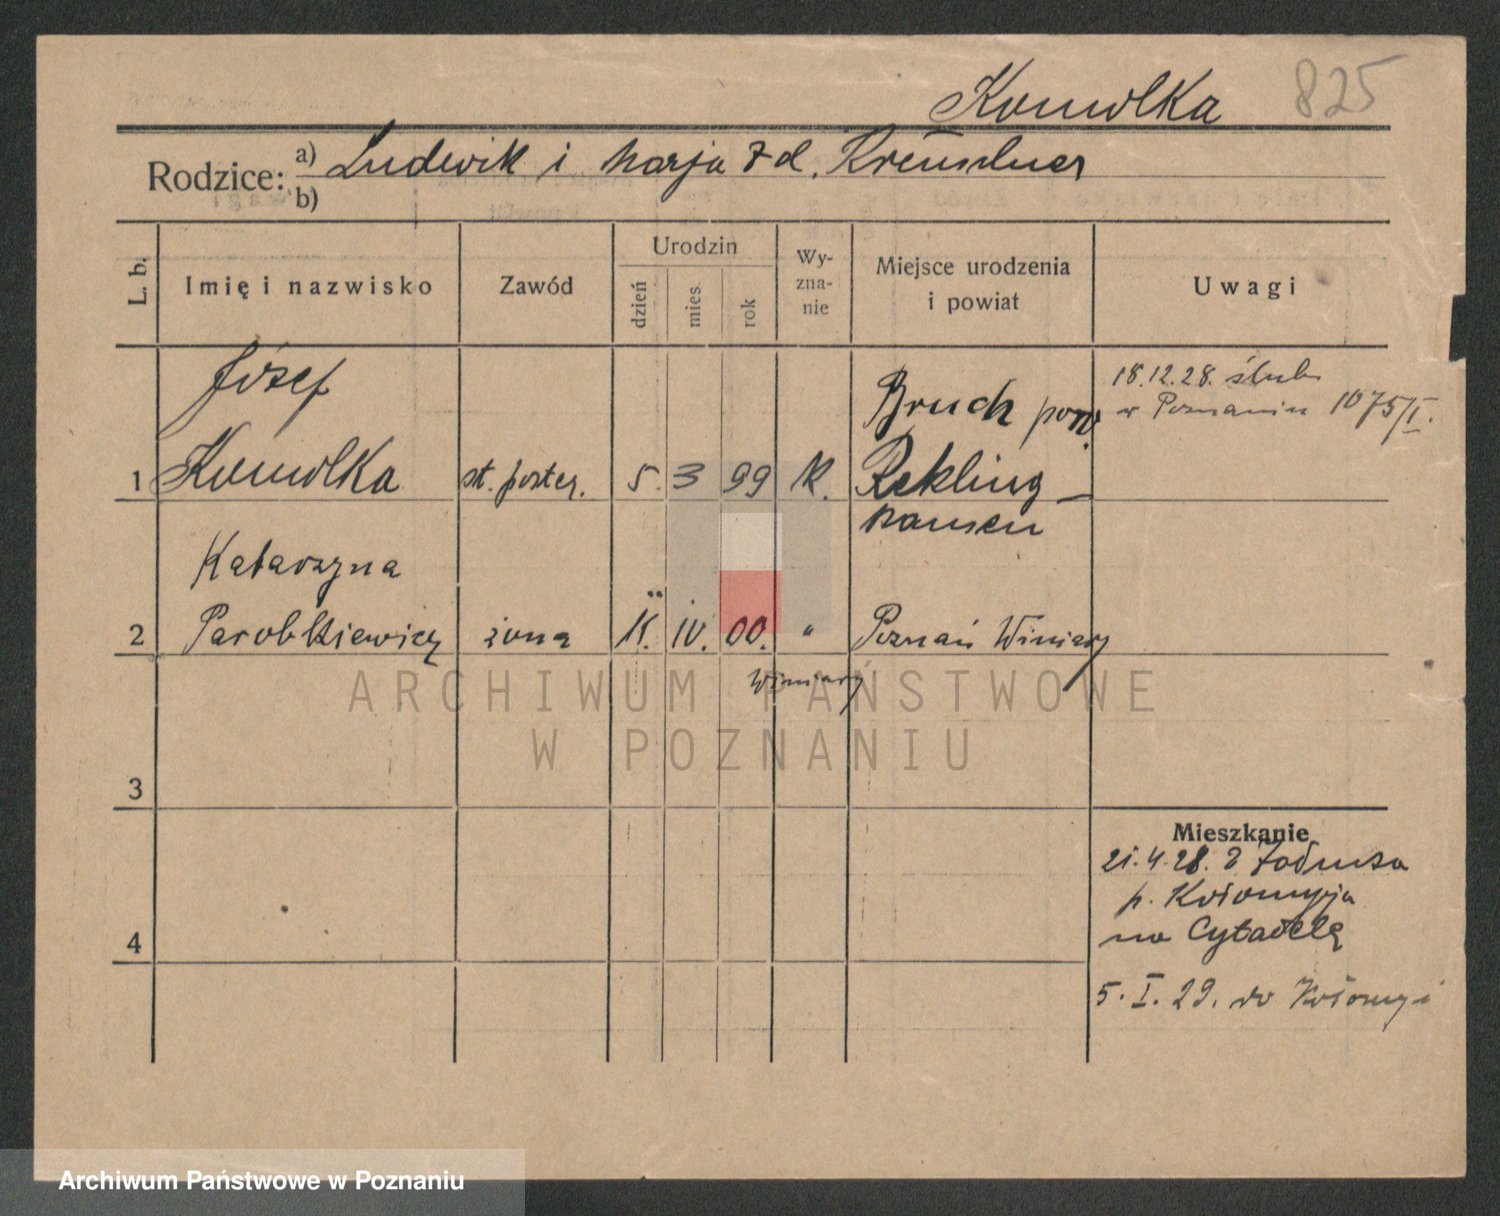 825
Rodzice: a) Ludwik i Marja z d.
b)
L. b.
Imię i nazwisko
Zawód
Urodzin
dzień
mies.
rok
Wy-
zna-
nie
Miejsce urodzenia
i powiat
Uwagi
Józef
1
st. poster.
5. 3 99
K.
Bruch pow.
Rekling-
hausen
18.12.28. ślub
w Poznaniu 1075/I.
Katarzyna
2 Parobkiewicz
żona
IV. 00.
"
Poznań Winiary
Winiary
3
4
Mieszkanie
21.4.28. z
p. Kołomyja
na Cytadelę
5. I. 29. do Kołomyi
ARCHIWUM PAŃSTWOWE
W POZNANIU
Archiwum Państwowe w Poznaniu